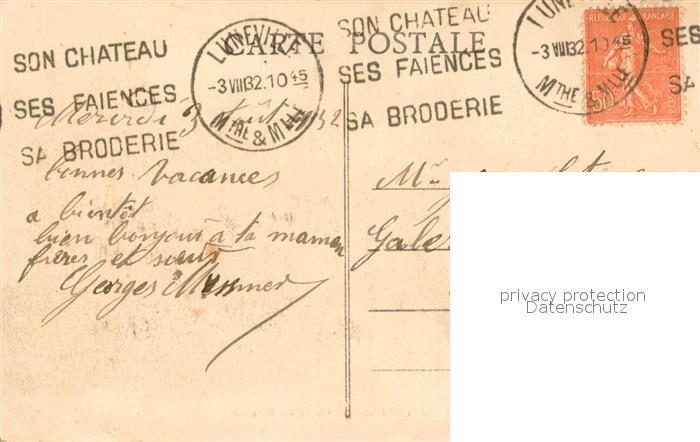 CARTE POSTALE
SON CHATEAU
SES FAIENCES
SA BRODERIE
LUNEVILLE
-3 VIII 32.10 45
MTHE & MLLE
SON CHATEAU
SES FAIENCES
SA BRODERIE
LUNEVI
-3 VIII 32.10 45
MTHE & MLLE
SES
SA
REPUBLIQUE FRANÇAISE
50c
Mercredi 3 Août 1932
bonnes Vacances
a bientôt
bien bonjour à ta maman
frères et sœurs
Georges
Mr
privacy protection
Datenschutz